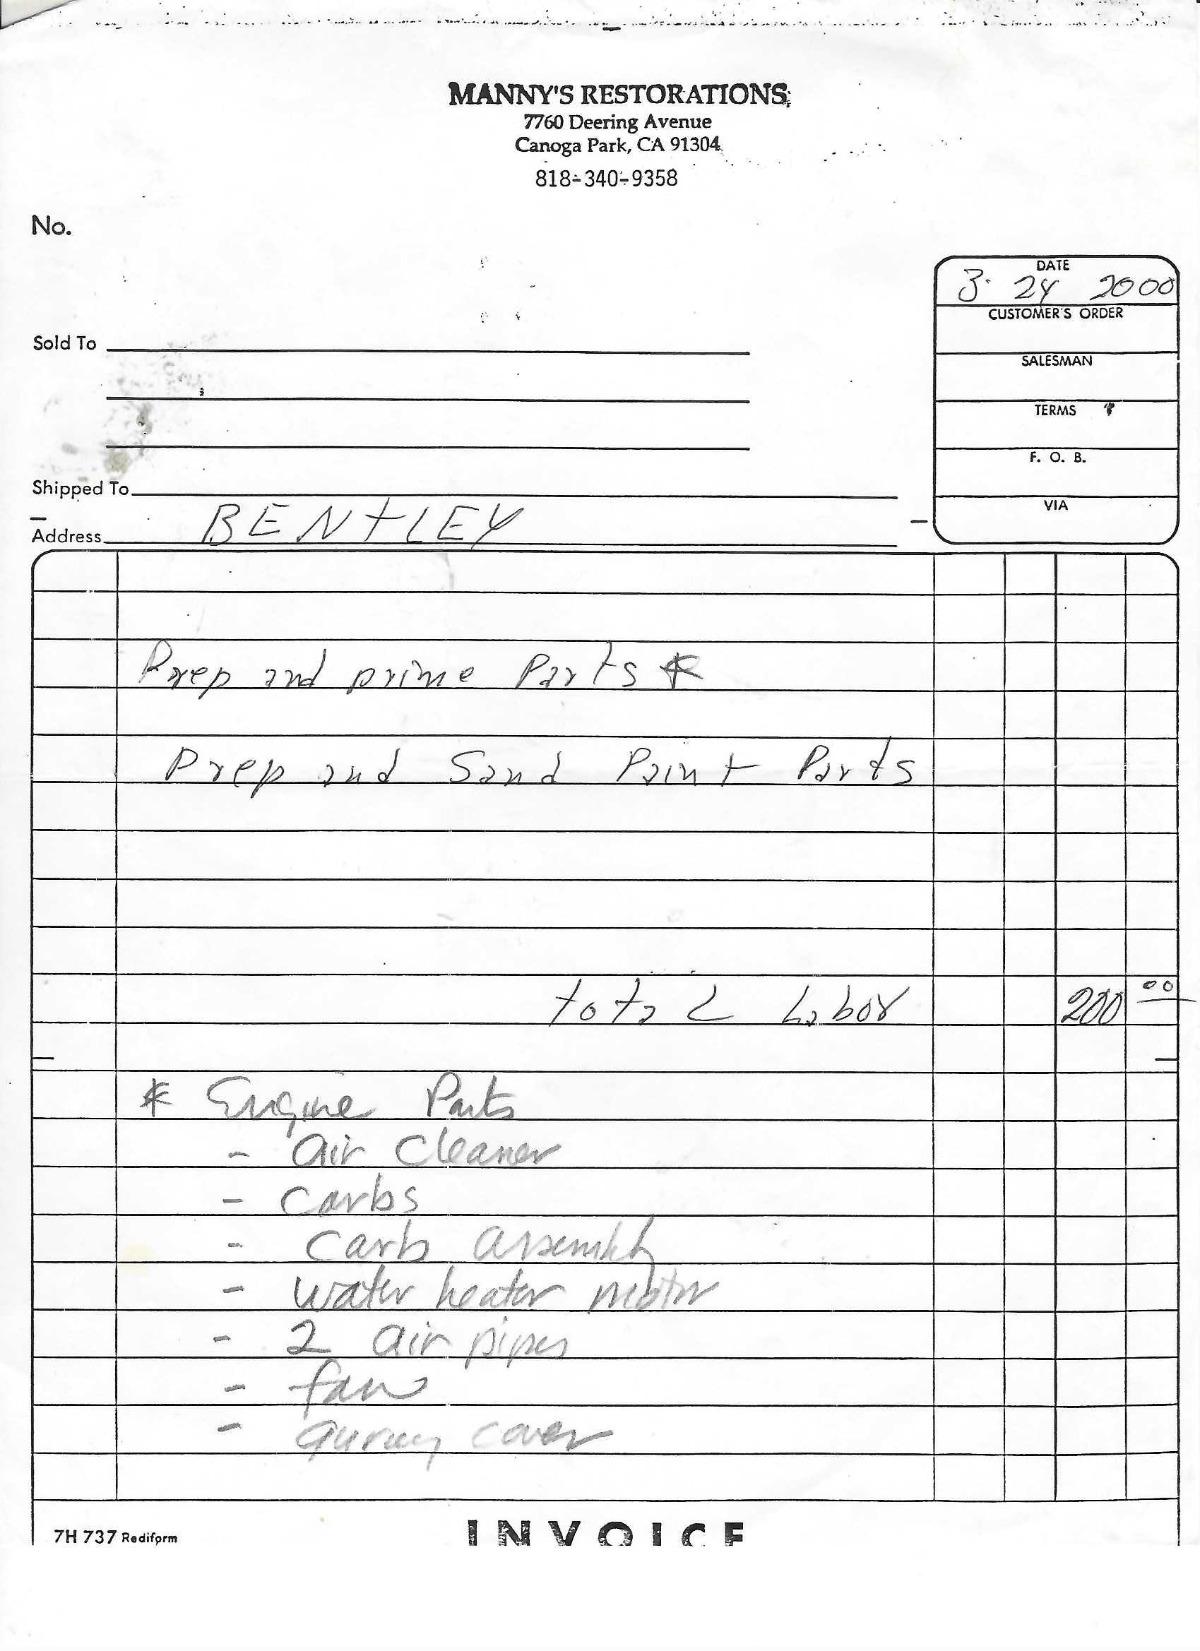 MANNY'S RESTORATIONS
7760 Deering Avenue
Canoga Park, CA 91304
818-340-9358
No.
DATE
3. 24 2000
CUSTOMER'S ORDER
Sold To
SALESMAN
TERMS
F. O. B.
Shipped To
VIA
Address BENTLEY
Prep and prime Parts *
Prep and Sand Paint Parts
total Labor 200 00
* Engine Parts
- air cleaner
- carbs
- carb assembly
- water heater motor
- 2 air pipes
- fan
- cover
7H 737 Rediform
INVOICE